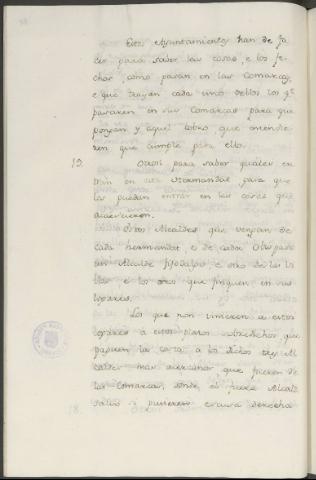 Estos Ayuntamientos han de fa
cer para saber las cosas, e los fe
chos, como pasan en las Comarcas,
e que trayan cada unos dellos los qe
pasaren en sus Comarcas para que
pongan y aquel cobro que entendie
ren que cumple para ello.
19. Otrosi para saber quales en
tran en esta Hermandat para que
les puedan entrar en las cosas que
acaescieren.
Otros Alcaldes que vengan de
cada hermandat, e de cada Obispado
un Alcalde fijodalgo, e otro de las vi
llas, e los otros que finquen en sus
logares.
Los que non vinieren a estos
logares a estos plazos sobredichos que
paguen la costa a los dichos
caldes mas acercanos que fueren de
las Comarcas, donde el fuere Alcalde
salvo si pusieren escusa derecha